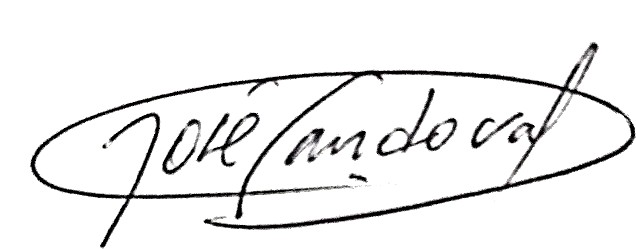 José Sandoval